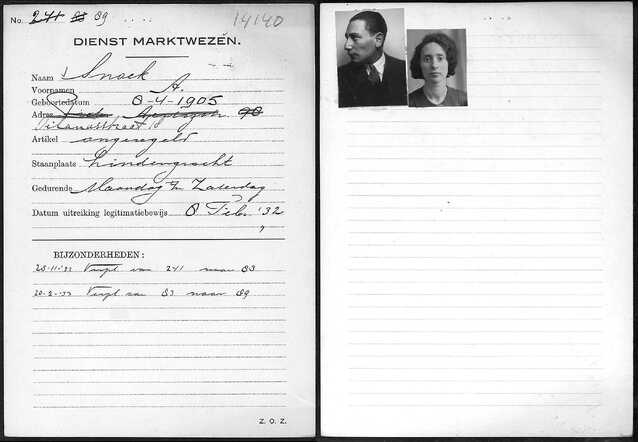 No. 241 83 89
14140
DIENST MARKTWEZEN.
Naam Snoek
Voornamen A.
Geboortedatum 8-4-1905
Adres 90
18
Artikel ongeregeld
Staanplaats Lindengracht
Gedurende Maandag t/m Zaterdag
Datum uitreiking legitimatiebewijs 8 Feb. '32
BIJZONDERHEDEN:
28-11-32 Verpl van 241 naar 83
20-2-33 Verpl van 83 naar 89
Z. O. Z.